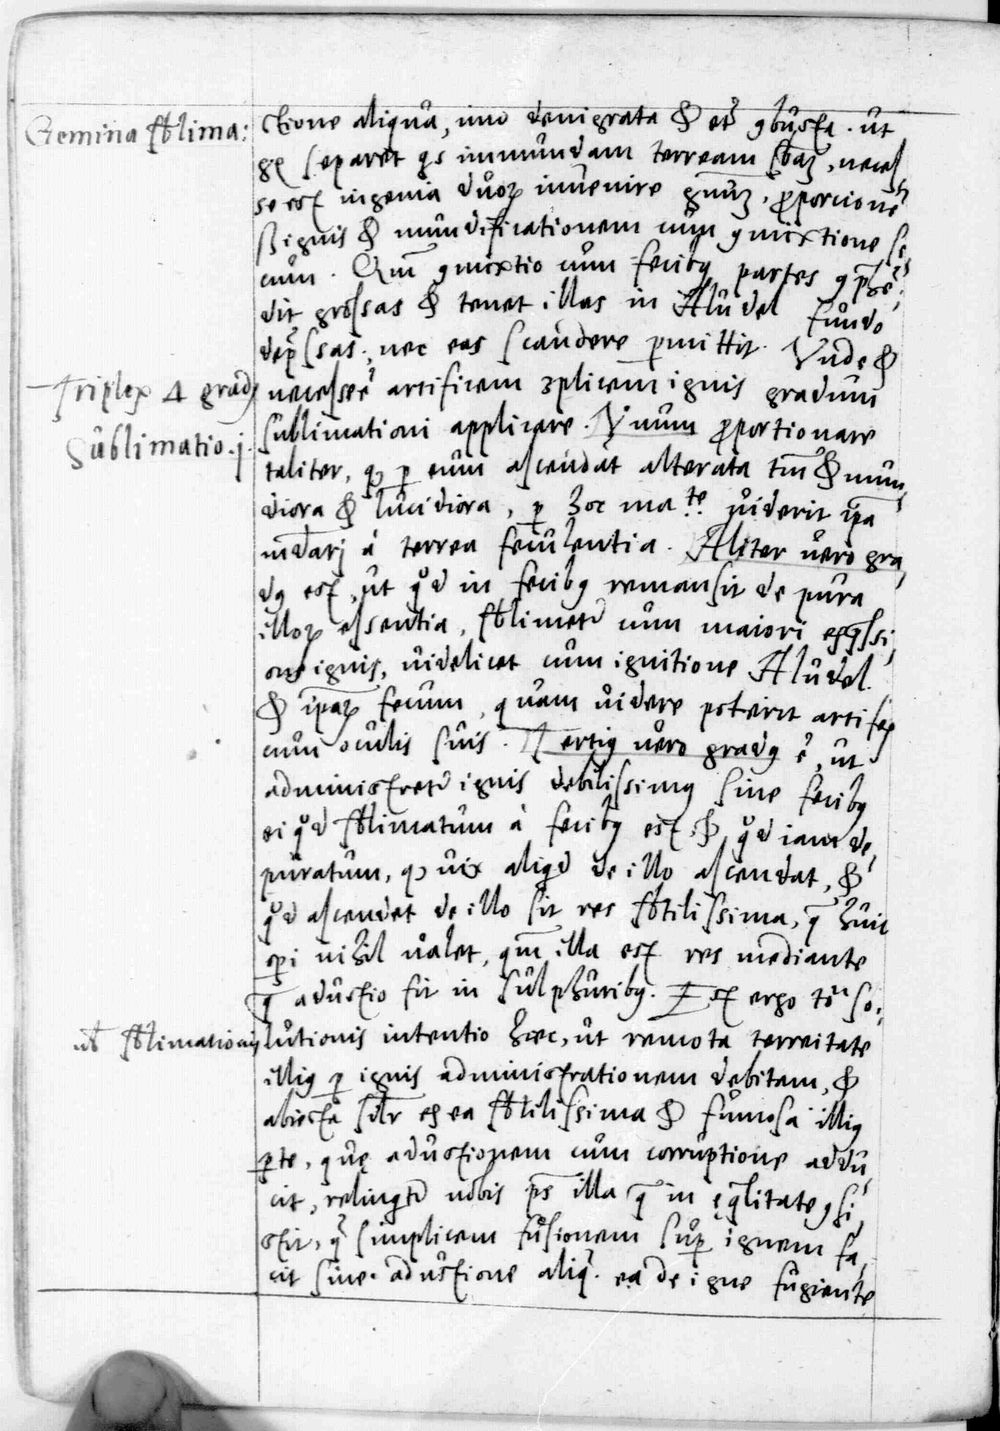 Gemina sblima:
ctione aliqua, imo denigrata & et combusta. ut
separet immundam terream, neces
se est ingenia duorum invenire genuum, proporcione
ignis & mundificationem cum comixtione fe
cum. Qm comixtio cum fecibus partes
dit grossas & tenet illas in Aludel fundo
depssas, nec eas scandere pmittit. Unde &
Triplex Δ gradus
necesse e artificem 3plicem ignis gradum
Sublimatio.j.
sublimationi applicare. Unum proportionare
taliter, q p eum ascendat alterata tm & mun
diora & lucidiora, p hoc ma.te viderit ipa
mdari à terrea feculentia. Aliter vero gra
dus est, ut qd in fecibus remansit de pura
illorum essentia, sblimetur cum maiori expssi
one ignis, videlicet cum ignitione Aludel
& iparum fecum, quam videre poterit artifex
cum oculis suis. Tertius vero gradus e, ut
administretur ignis debilissimus sine fecibus
ei qd sblimatum à fecibus est, & qd iam de
puratum, q vix aliqd de illo ascendat, &
qd ascendet de illo sit res sbtilissima, q huic
opi nihil valet, qm illa est res mediante
q adustio fit in sulphuribus. Est ergo to so
sblimationis
lutionis intentio hæc, ut remota terreitate
illius p ignis administrationem debitam, &
abiecta silr ex ea sbtilissima & fumosa illius
pte, quę adustionem cum corruptione addu
cit, relinqtur nobis ps illa q in ęqlitate consi
stit, q simplicem fusionem sup ignem fa
cit sine adustione aliq. ea de igne fugiente